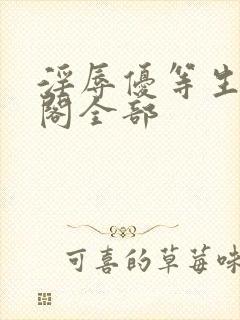 淫辱優等生
閣全部
可喜的草莓味